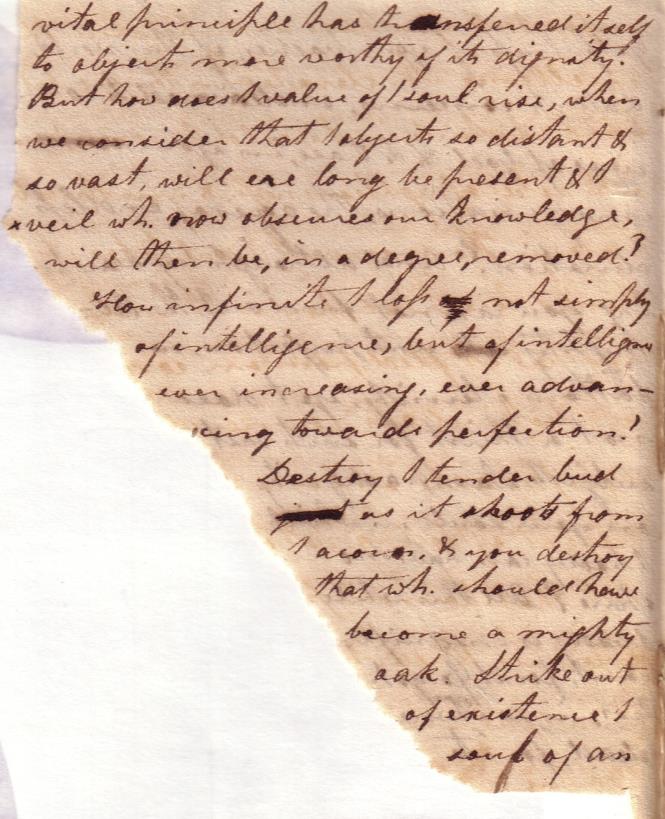 vital principle has transfered itself
to objects more worthy of its dignity.
But how does / value of / soul rise, when
we consider that / objects so distant &
so vast, will ere long be present & /
veil wh. now obscures our knowledge,
will then be, in a degree, removed?
How infinite / loss not simply
of intelligence, but of intelligence
ever increasing, ever advan-
cing towards perfection!
Destroy / tender bud
just as it shoots from
/ acorn, & you destroy
that wh. should have
become a mighty
oak. Strike out
of existence /
soul of an